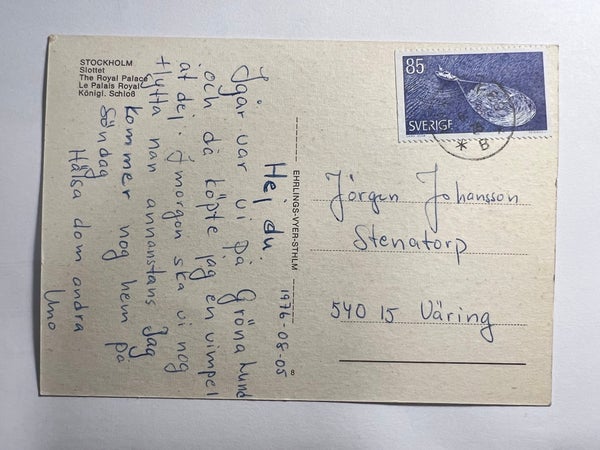 STOCKHOLM
Slottet
The Royal Palace
Le Palais Royal
Königl. Schloß
1976-08-05
Hej du
Igår var vi på Gröna Lund
och då köpte jag en vimpel
åt dej. I morgon ska vi nog
flytta nån annanstans jag
kommer nog hem på
söndag
Hälsa dom andra
Uno
EHRLINGS-VYER-STHLM
8
85
SVERIGE
* B
Jörgen Johansson
Stenatorp
540 15 Väring